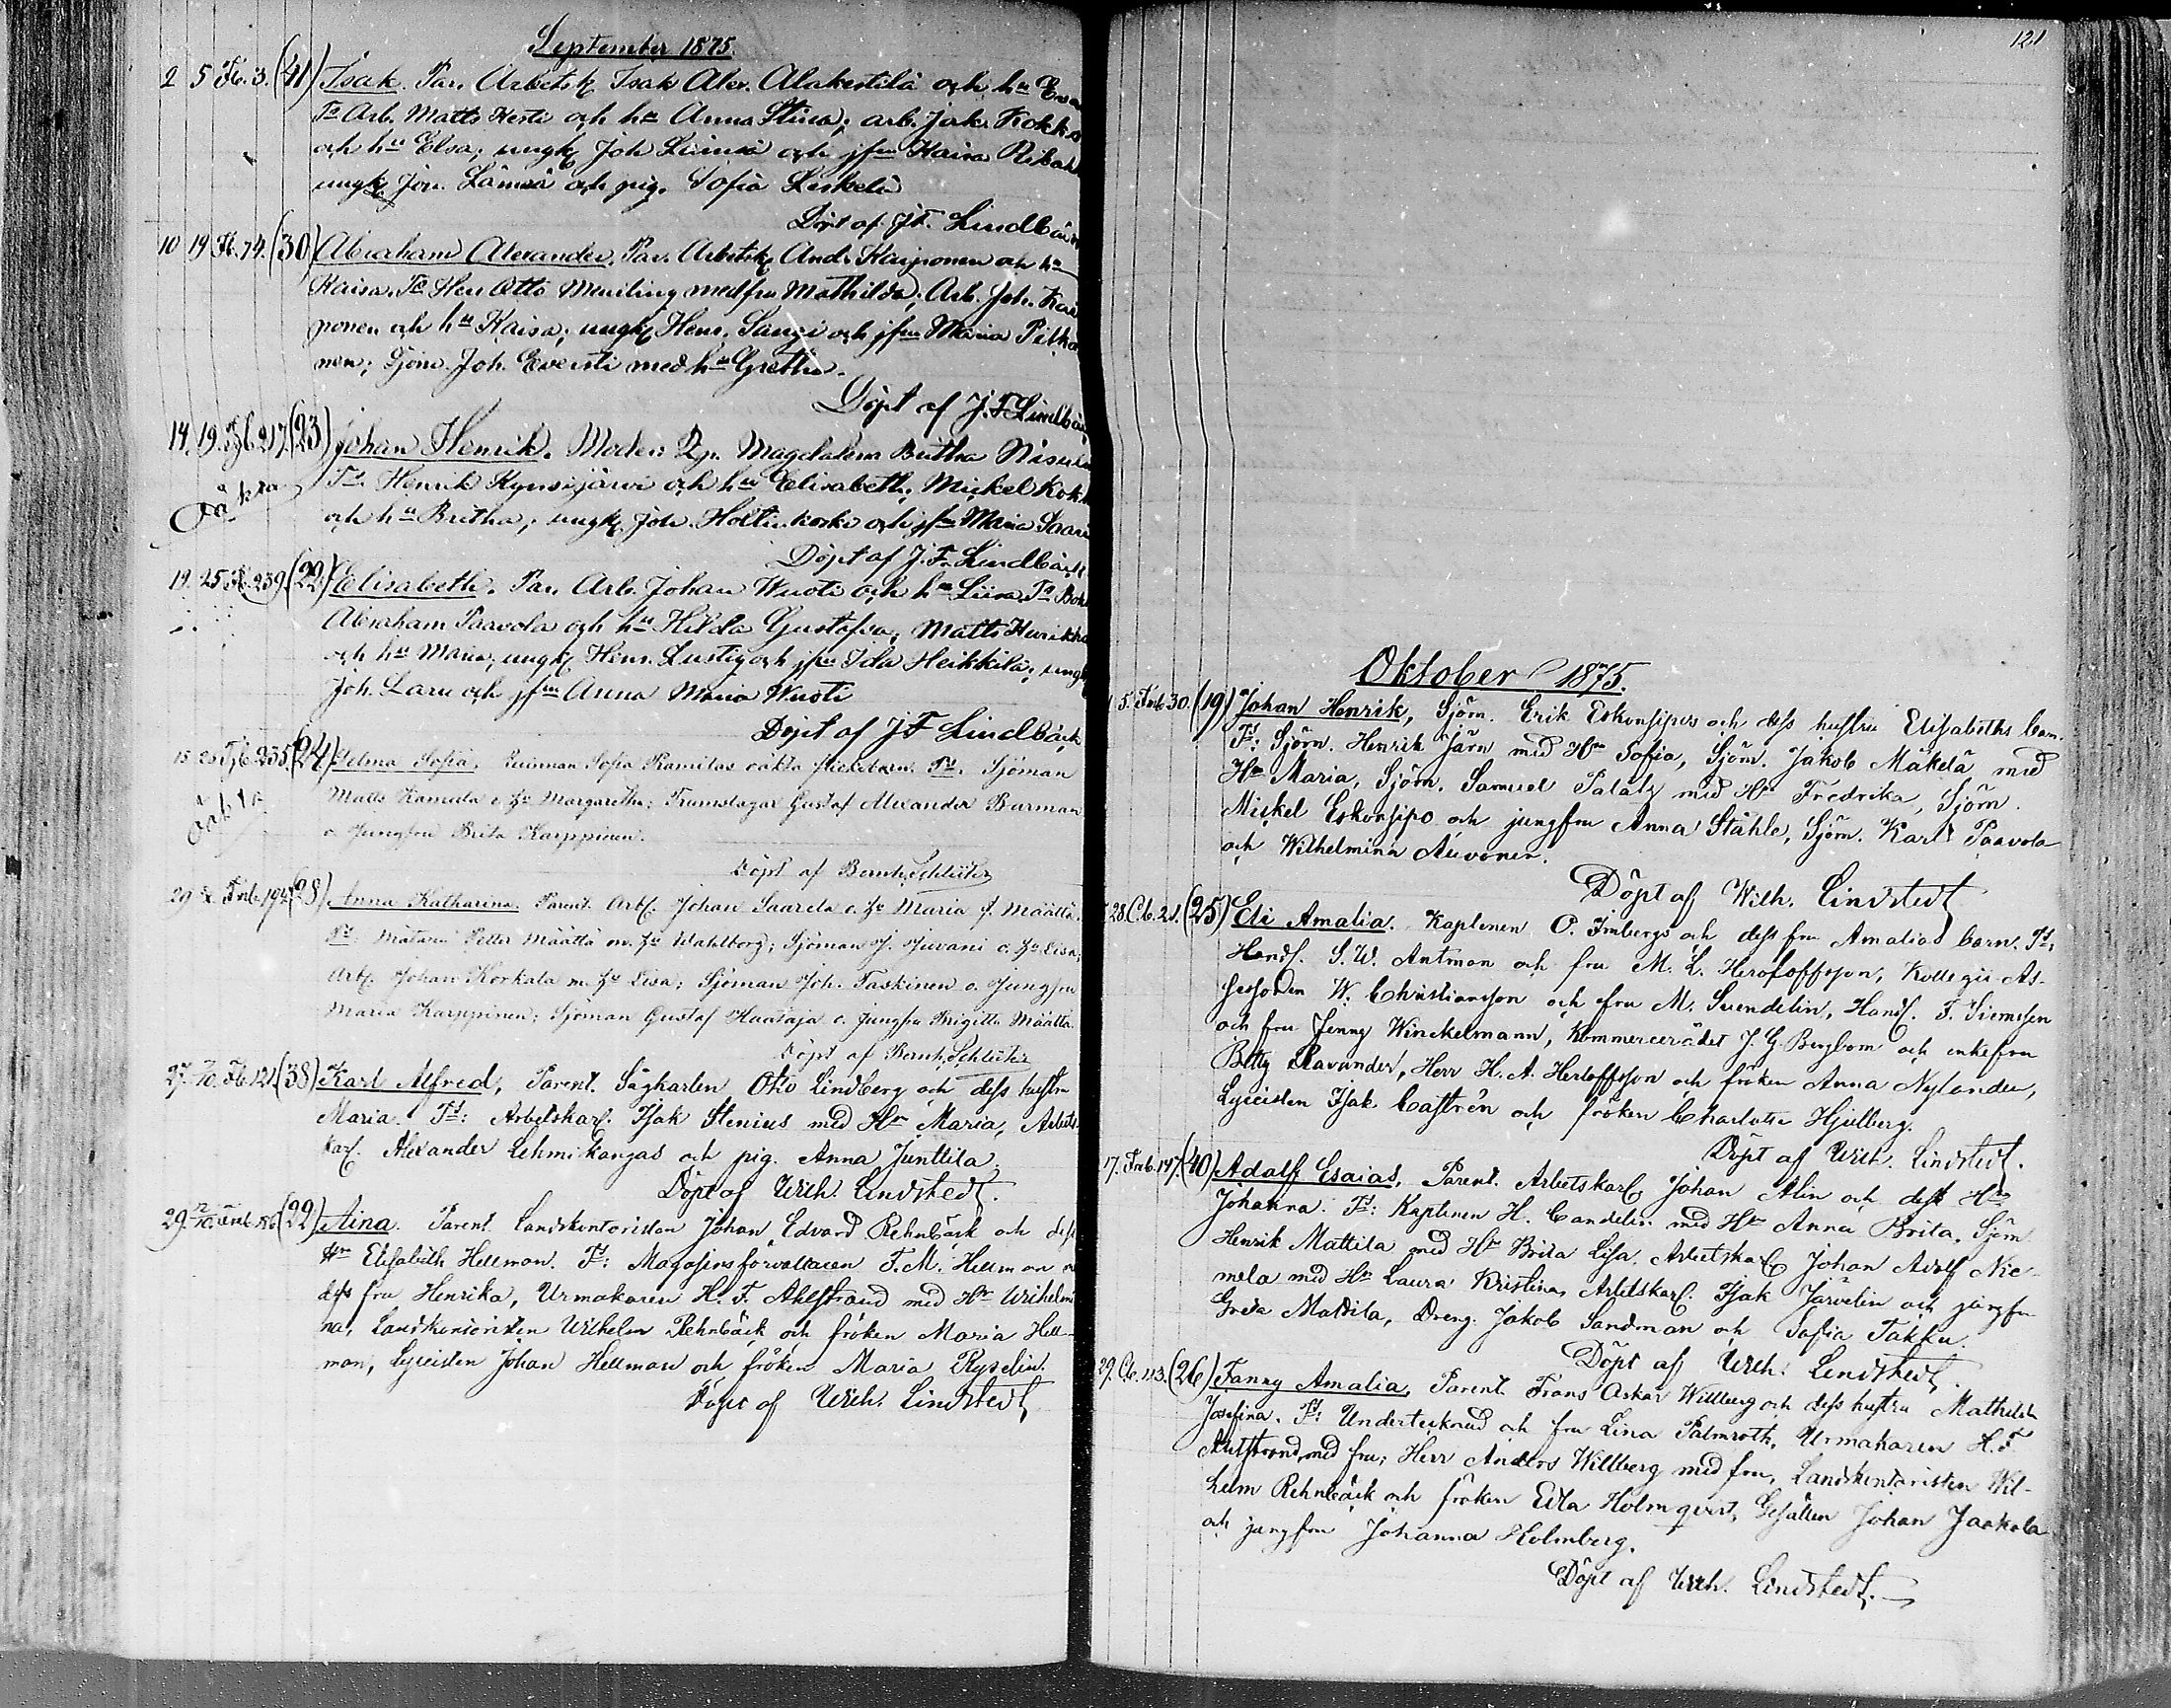 September 1875.
2 5 Fb. 3. (41) Isak. Par. Arbetsk. Isak Alex. Alakestilä och hu Eva
Ts Arb. Matts Kesti och hu Anna Stina; arb. Jak. Kokko
och hu Elsa; ungk. Joh Lämsä och jfru Kaisa
ungk. Joh. Lämsä och pig. Sofia Leskelä
Döpt af J.F. Lindbäck
10 19 Fb. 74. (30) Abraham Alexander. Par. Arbetsk. And. Karjonen och hu
Kaisa. Ts Herr Otto Meurling med fru Mathilda; Arb. Joh. Kar
ponen och hu Kaisa; ungk. Henr. Sangi och jfru Maria Pitkä
nen; Sjöm. Joh. Eversti med hu Gretha.
Döpt af J. F. Lindbäck
14. 19. Tjb. 217. (23) Johan Henrik. Moder: Pig. Magdalena Britha
oäkta Ts. Henrik Kynsijärvi och hu Elisabeth; Mickel Kokko
och hu Britha; ungk. Joh. Holtinkoski och jfru Maria Saari
Döpt af J. F. Lindbäck
19. 25. Fb. 239. (22) Elisabeth. Par. Arb. Johan Wuoti och hu Liisa. Ts
Abraham Paavola och hu Hilda Gustafva; Matts
och hu Maria; ungk. Henr. Lustig och jfru Ida Heikkilä; ungk
Joh. Laru och jfru Anna Maria Wuoti
Döpt af J F Lindbäck
15 Tjb. 235. (24) Selma Sofia, Qvinnan Sofia Ramilas oäkta flickebarn. Ts. Sjöman
Matts Kamula o. hu Margaretha; Trumslagar Gustaf Alexander Burman
oäkta o Jungfru Brita Karppinen.
Döpt af Bernh. Schlüter
29 Inb. 194. (28) Anna Katharina. Parent. Arbk. Johan Saarela o. hu Maria f. Määttä.
Ts: Mätaren Petter Määttä m. hu Wahlborg; Sjöman J. Juvani o. hu Lisa;
Arbk. Johan Korkala m. hu Lisa; Sjöman Joh. Taskinen o. Jungfru
Maria Karppinen; Sjöman Gustaf Haataja o. Jungfru Brigitta Määttä.
Döpt af Bernh. Schlüter
27. /10. Fb. 121. (38) Karl Alfred, Parent. Sågkarlen Otto Lindberg och dess hustru
Maria. Ts: Arbetskarl. Isak Stenius med Hu Maria, Arbets-
karl. Alexander Lehmikangas och pig. Anna Junttila.
Döpt af Wilh. Lindstedt.
29. 12/10. Inb. 86. (22) Aina. Parent. Landskontoristen Johan Edvard Rehnbäck och dess
Hu Elisabeth Hellman. Ts: Magasinsförvaltaren F. M. Hellman
dess fru Henrika, Urmakaren H. F. Ahlstrand med Hu Wilhelmi
na, Landskontoristen Wilhelm Rehnbäck och fröken Maria Hell-
man, Lyceisten Johan Hellman och fröken Maria Ryselin.
Döpt af Wilh. Lindstedt

121
Oktober 1875.
5. Inb. 30. (19) Johan Henrik, Sjöm. Erik Eskonsipos och dess hustru Elisabeths barn.
Ts: Sjöm. Henrik Järn med Hu Sofia, Sjöm. Jakob Mäkelä med
Hu Maria, Sjöm. Samuel Palatz med Hu Fredrika, Sjöm.
Mickel Eskonsipo och jungfru Anna Ståhle, Sjöm. Karl Paavola
och Wilhelmina Auvonen.
Döpt af Wilh. Lindstedt
28. Cb. 21. (25) Eli Amalia. Kaptenen O. Imbergs och dess fru Amalias barn. Ts:
Handl. S. W. Antman och fru M. L. Herloffsson, Kollegii As-
sessoren W. Christiansson och fru M. Svendelin, Handl. F. Siemssen
och fru Jenny Winckelmann, Kommercerådet J. G. Bergbom och enkefru
Betty Ravander, Herr H. A. Herloffsson och fröken Anna Nylander,
Lyceisten Isak Castrén och fröken Charlotta Hjelberg.
Döpt af Wilh. Lindstedt.
17. Inb. 147. (40) Adolf Esaias, Parent. Arbetskarl Johan Alin och dess Hu
Johanna. Ts: Kaptenen H. Candelin med Hu Anna Brita, Sjöm
Henrik Mattila med Hu Brita Lisa, Arbetskarl Johan Adolf Nie-
melä med Hu Laura Kristina, Arbetskarl. Isak Järvelin och jungfru
Greta Mattila, Dreng. Jakob Sandman och Sofia Takku.
Döpt af Wilh. Lindstedt.
29. Cb. 113. (26) Fanny Amalia, Parent. Frans Oskar Willberg och dess hustru Mathilda
Josefina. Ts: Undertecknad och fru Lina Palmroth, Urmakaren H. F.
Ahlstrand med fru, Herr Anders Willberg med fru, Landskontoristen Wil-
helm Rehnbäck och fröken Edla Holmqvist, Gesällen Johan Jaakola
och jungfru Johanna Holmberg.
Döpt af Wilh. Lindstedt.